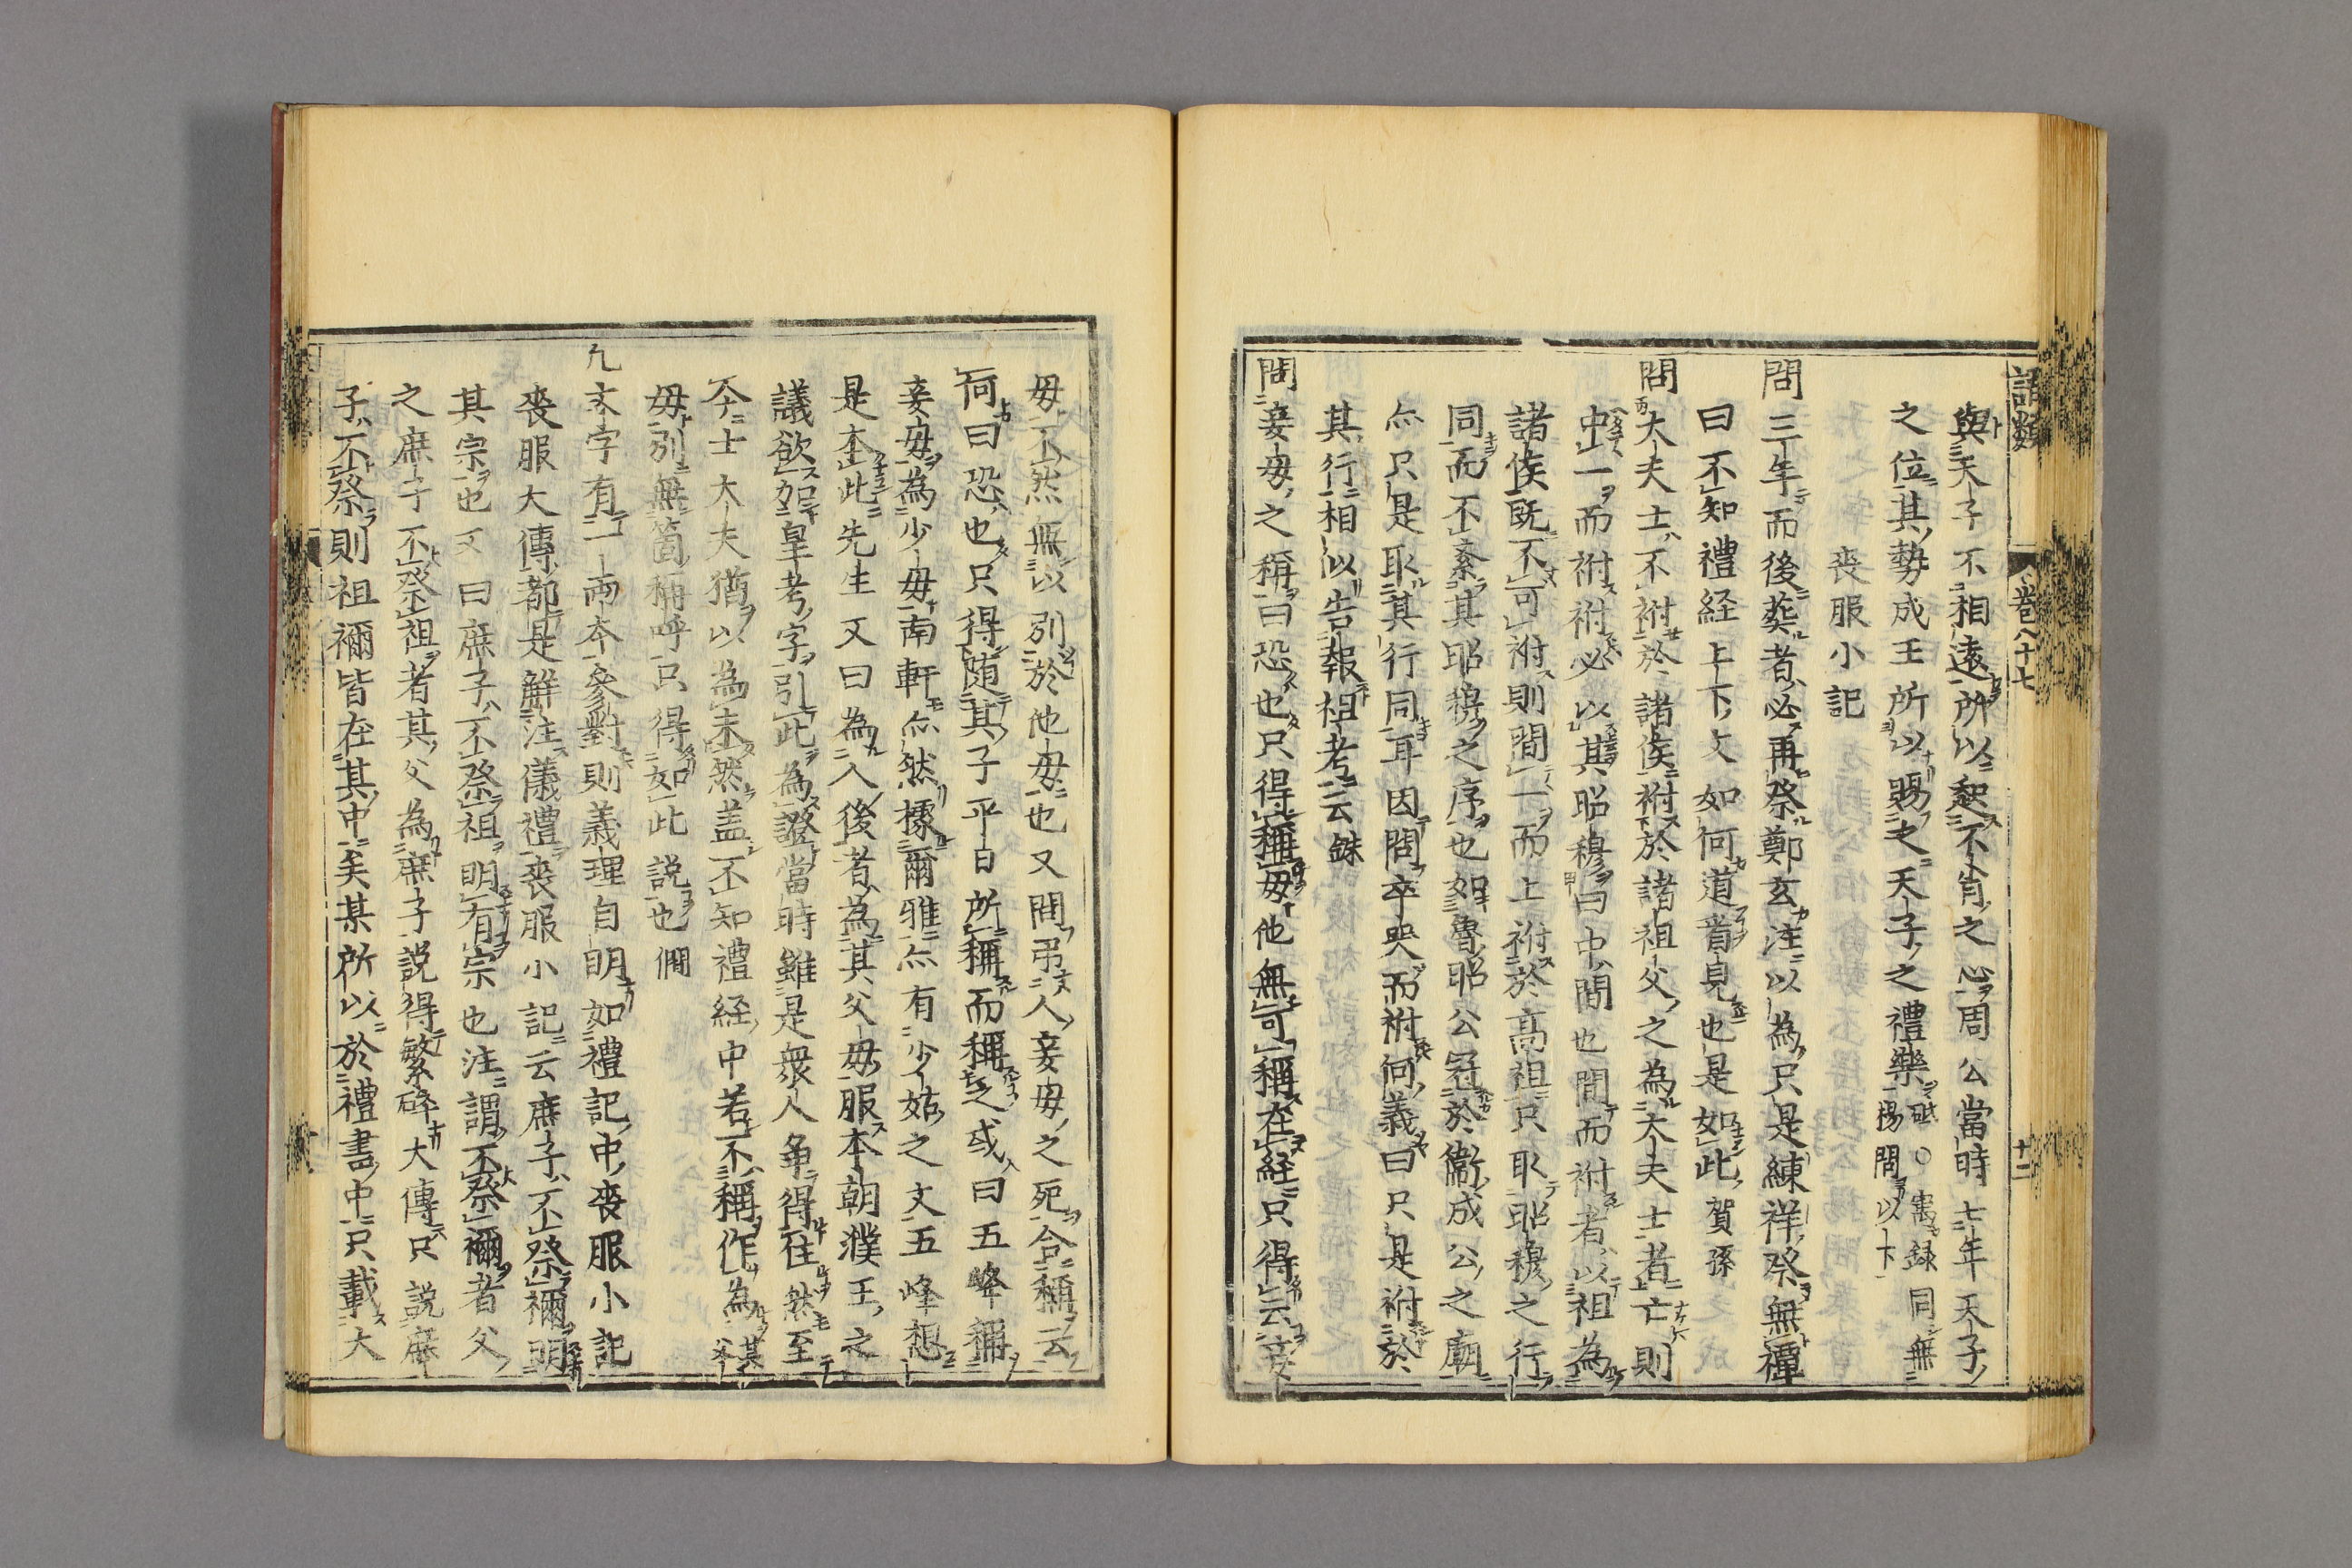 語類
卷八十七
十二
與天子不相遠所以起不肖之心周公當時七年天子
之位其勢成王所以賜之天子之禮樂砥○寓録同無
楊問以下
喪服小記
問三年而後葬者必再祭鄭玄注以為只是練祥祭無禫
曰不知禮経上下文如何道看見也是如此賀孫
問大夫士不祔於諸侯祔於諸祖父之為大夫士者亡則
中一而祔祔必以其昭穆曰中間也間而祔者以祖為
諸侯既不可祔則間一而上祔於高祖只取昭穆之行
同而不紊其昭穆之序也如魯昭公冠於衞成公之廟
亦只是取其行同耳因問卒哭而祔何義曰只是祔於
其行相似告報祖考云銖
問妾母之稱曰恐也只得稱母他無可稱在経只得云妾
母不然無以別於他母也又問弔人妾母之死合稱云
何曰恐也只得随其子平日所稱而稱之或曰五峰稱
妾母為少母南軒亦然據爾雅亦有少姑之文五峰想
是本此先生又曰為人後者為其父母服本朝濮王之
議欲加皇考字引此為證當時雖是衆人争得住然至
今士大夫猶以為未然盖不知禮経中若不稱作為其父
母別無箇稱呼只得如此說也僩
凡文字有一兩本參對則義理自明如禮記中喪服小記
喪服大傳都是解注儀禮喪服小記云庶子不祭禰明
其宗也又曰庶子不祭祖明有宗也注謂不祭禰者父
之庶子不祭祖者其父為庶子說得繁碎大傳只說庶
子不祭則祖禰皆在其中矣某所以於禮書中只載大